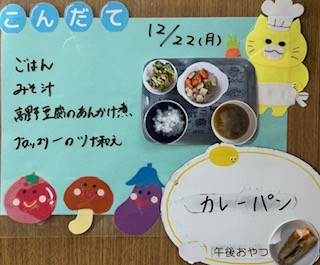 こんだて
12/22(月)
ごはん
みそ汁
高野豆腐のあんかけ煮
ブロッコリーのツナ和え
(カレーパン)
午後おやつ